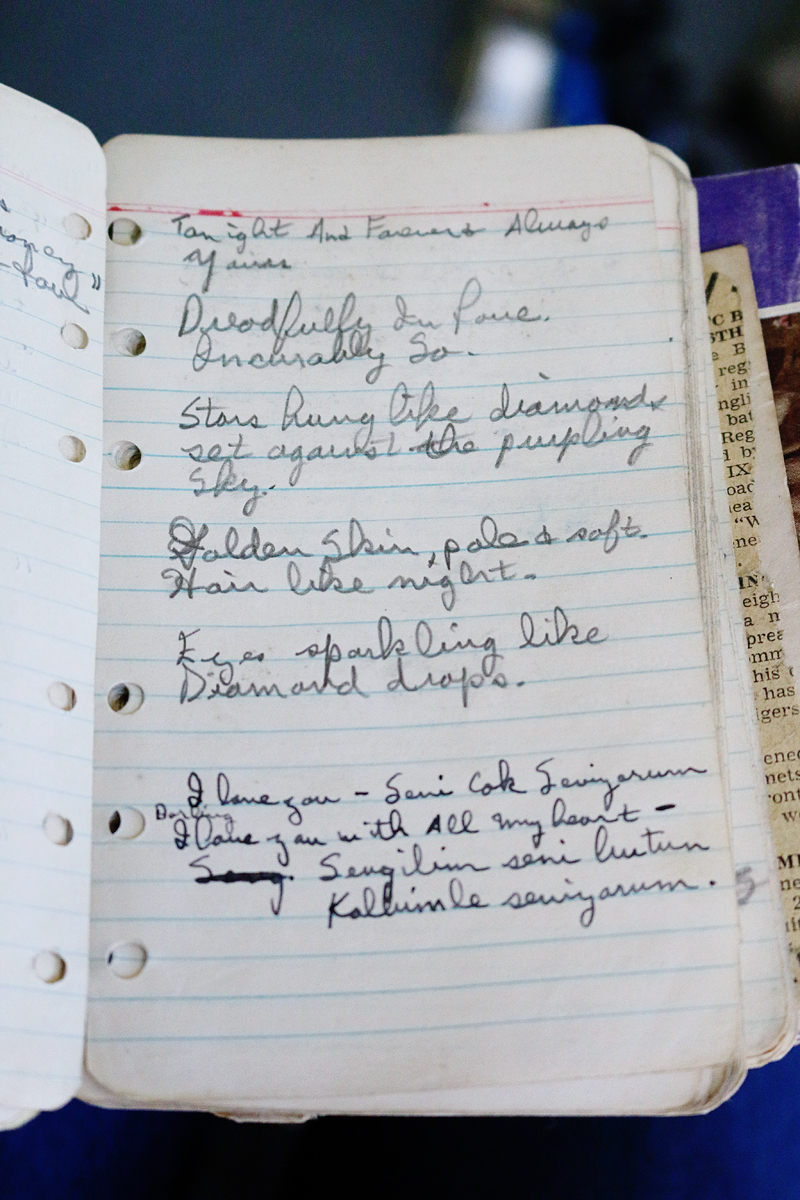 money"
Tonight And Forever & Always
Yours
Dreadfully In Love.
Incurably So.
Stars hung like diamonds
set against the purpling
sky.
Golden Skin, pale & soft.
Hair like night.
Eyes sparkling like
Diamond drops.
I love you - Seni Cok Seviyorum
Darling
I love you with All my heart -
Sevgilim seni butun
Kalbimle seviyorum.
C B
STH
e B
reg
in
ngli
bat
Reg
d b
IX
oad
ea
"W
ne
IN
eigh
a n
prea
omm
his
has
igers
ened
nets
ront
w
MI
ne
2
5